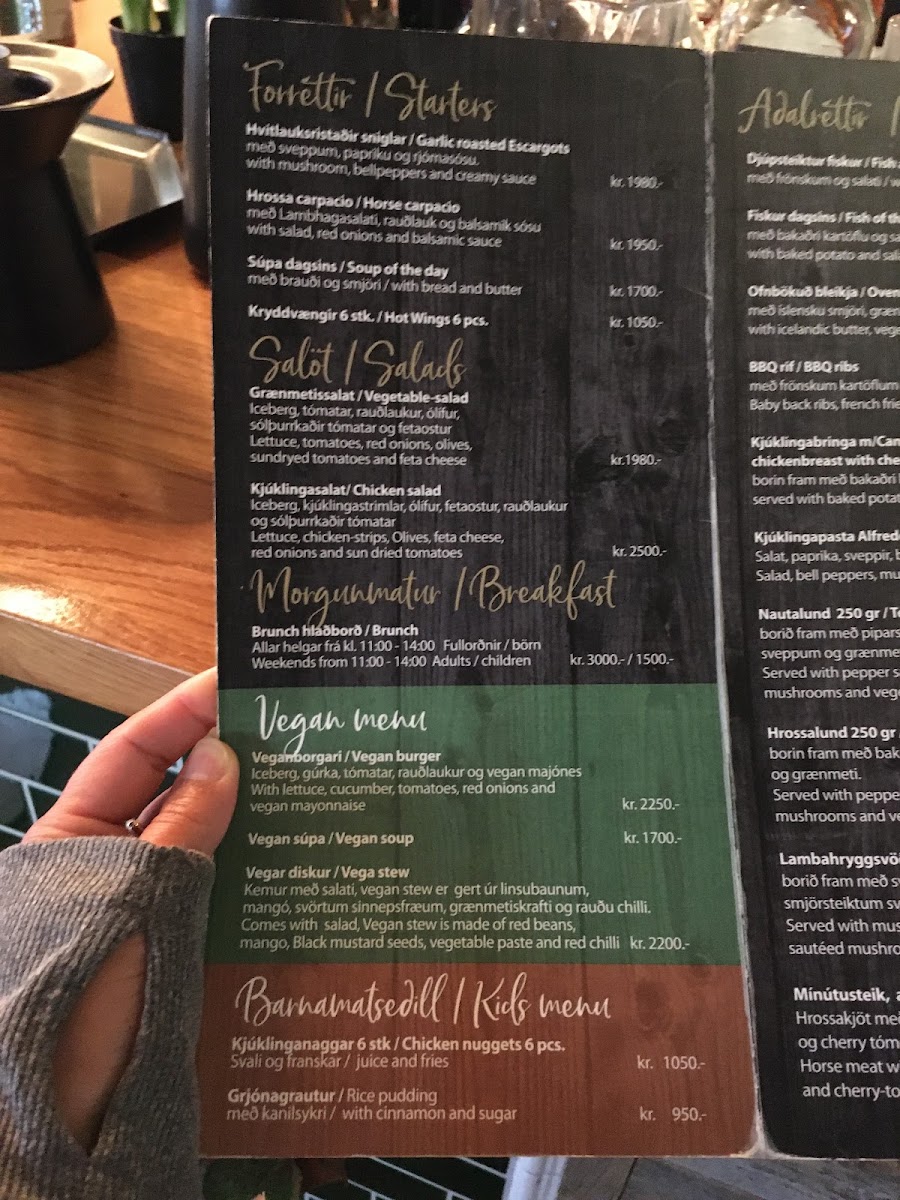 Forréttir / Starters
Hvítlauksristaðir sniglar / Garlic roasted Escargots
með sveppum, papriku og rjómasósu.
with mushroom, bellpeppers and creamy sauce kr. 1980.-
Hrossa carpacio / Horse carpacio
með Lambhagasalati, rauðlauk og balsamik sósu
with salad, red onions and balsamic sauce kr. 1950.-
Súpa dagsins / Soup of the day
með brauði og smjöri / with bread and butter kr. 1700.-
Kryddvængir 6 stk. / Hot Wings 6 pcs. kr. 1050.-
Salöt / Salads
Grænmetissalat / Vegetable-salad
Iceberg, tómatar, rauðlaukur, ólífur,
sólþurrkaðir tómatar og fetaostur
Lettuce, tomatoes, red onions, olives,
sundryed tomatoes and feta cheese kr.1980.-
Kjúklingasalat/ Chicken salad
Iceberg, kjúklingastrimlar, ólífur, fetaostur, rauðlaukur
og sólþurrkaðir tómatar
Lettuce, chicken-strips, Olives, feta cheese,
red onions and sun dried tomatoes kr. 2500.-
Morgunmatur / Breakfast
Brunch hlaðborð / Brunch
Allar helgar frá kl. 11:00 - 14:00 Fullorðnir / börn
Weekends from 11:00 - 14:00 Adults / children kr. 3000.- / 1500.-
Vegan menu
Veganborgari / Vegan burger
Iceberg, gúrka, tómatar, rauðlaukur og vegan majónes
With lettuce, cucumber, tomatoes, red onions and
vegan mayonnaise kr. 2250.-
Vegan súpa / Vegan soup kr. 1700.-
Vegar diskur / Vega stew
Kemur með salati, vegan stew er gert úr linsubaunum,
mangó, svörtum sinnepsfræum, grænmetiskrafti og rauðu chilli.
Comes with salad, Vegan stew is made of red beans,
mango, Black mustard seeds, vegetable paste and red chilli kr. 2200.-
Barnamatseðill / Kids menu
Kjúklinganaggar 6 stk / Chicken nuggets 6 pcs.
Svali og franskar / juice and fries kr. 1050.-
Grjónagrautur / Rice pudding
með kanilsykri / with cinnamon and sugar kr. 950.-
Aðalréttir /
Djúpsteiktur fiskur / Fish
með frönskum og salati /
Fiskur dagsins / Fish of th
með bakaðri kartöflu og sa
with baked potato and sala
Ofnbökuð bleikja / Oven
með íslensku smjöri, græn
with icelandic butter, vege
BBQ rif / BBQ ribs
með frönskum kartöflum
Baby back ribs, french frie
Kjúklingabringa m/Can
chickenbreast with che
borin fram með bakaðri
served with baked potat
Kjúklingapasta Alfred
Salat, paprika, sveppir, b
Salad, bell peppers, mu
Nautalund 250 gr / Te
borið fram með pipars
sveppum og grænme
Served with pepper s
mushrooms and vege
Hrossalund 250 gr /
borin fram með bak
og grænmeti.
Served with peppe
mushrooms and ve
Lambahryggsvöð
borið fram með sv
smjörsteiktum sv
Served with mus
sautéed mushro
Mínútusteik, a
Hrossakjöt með
og cherry tóm
Horse meat w
and cherry-to